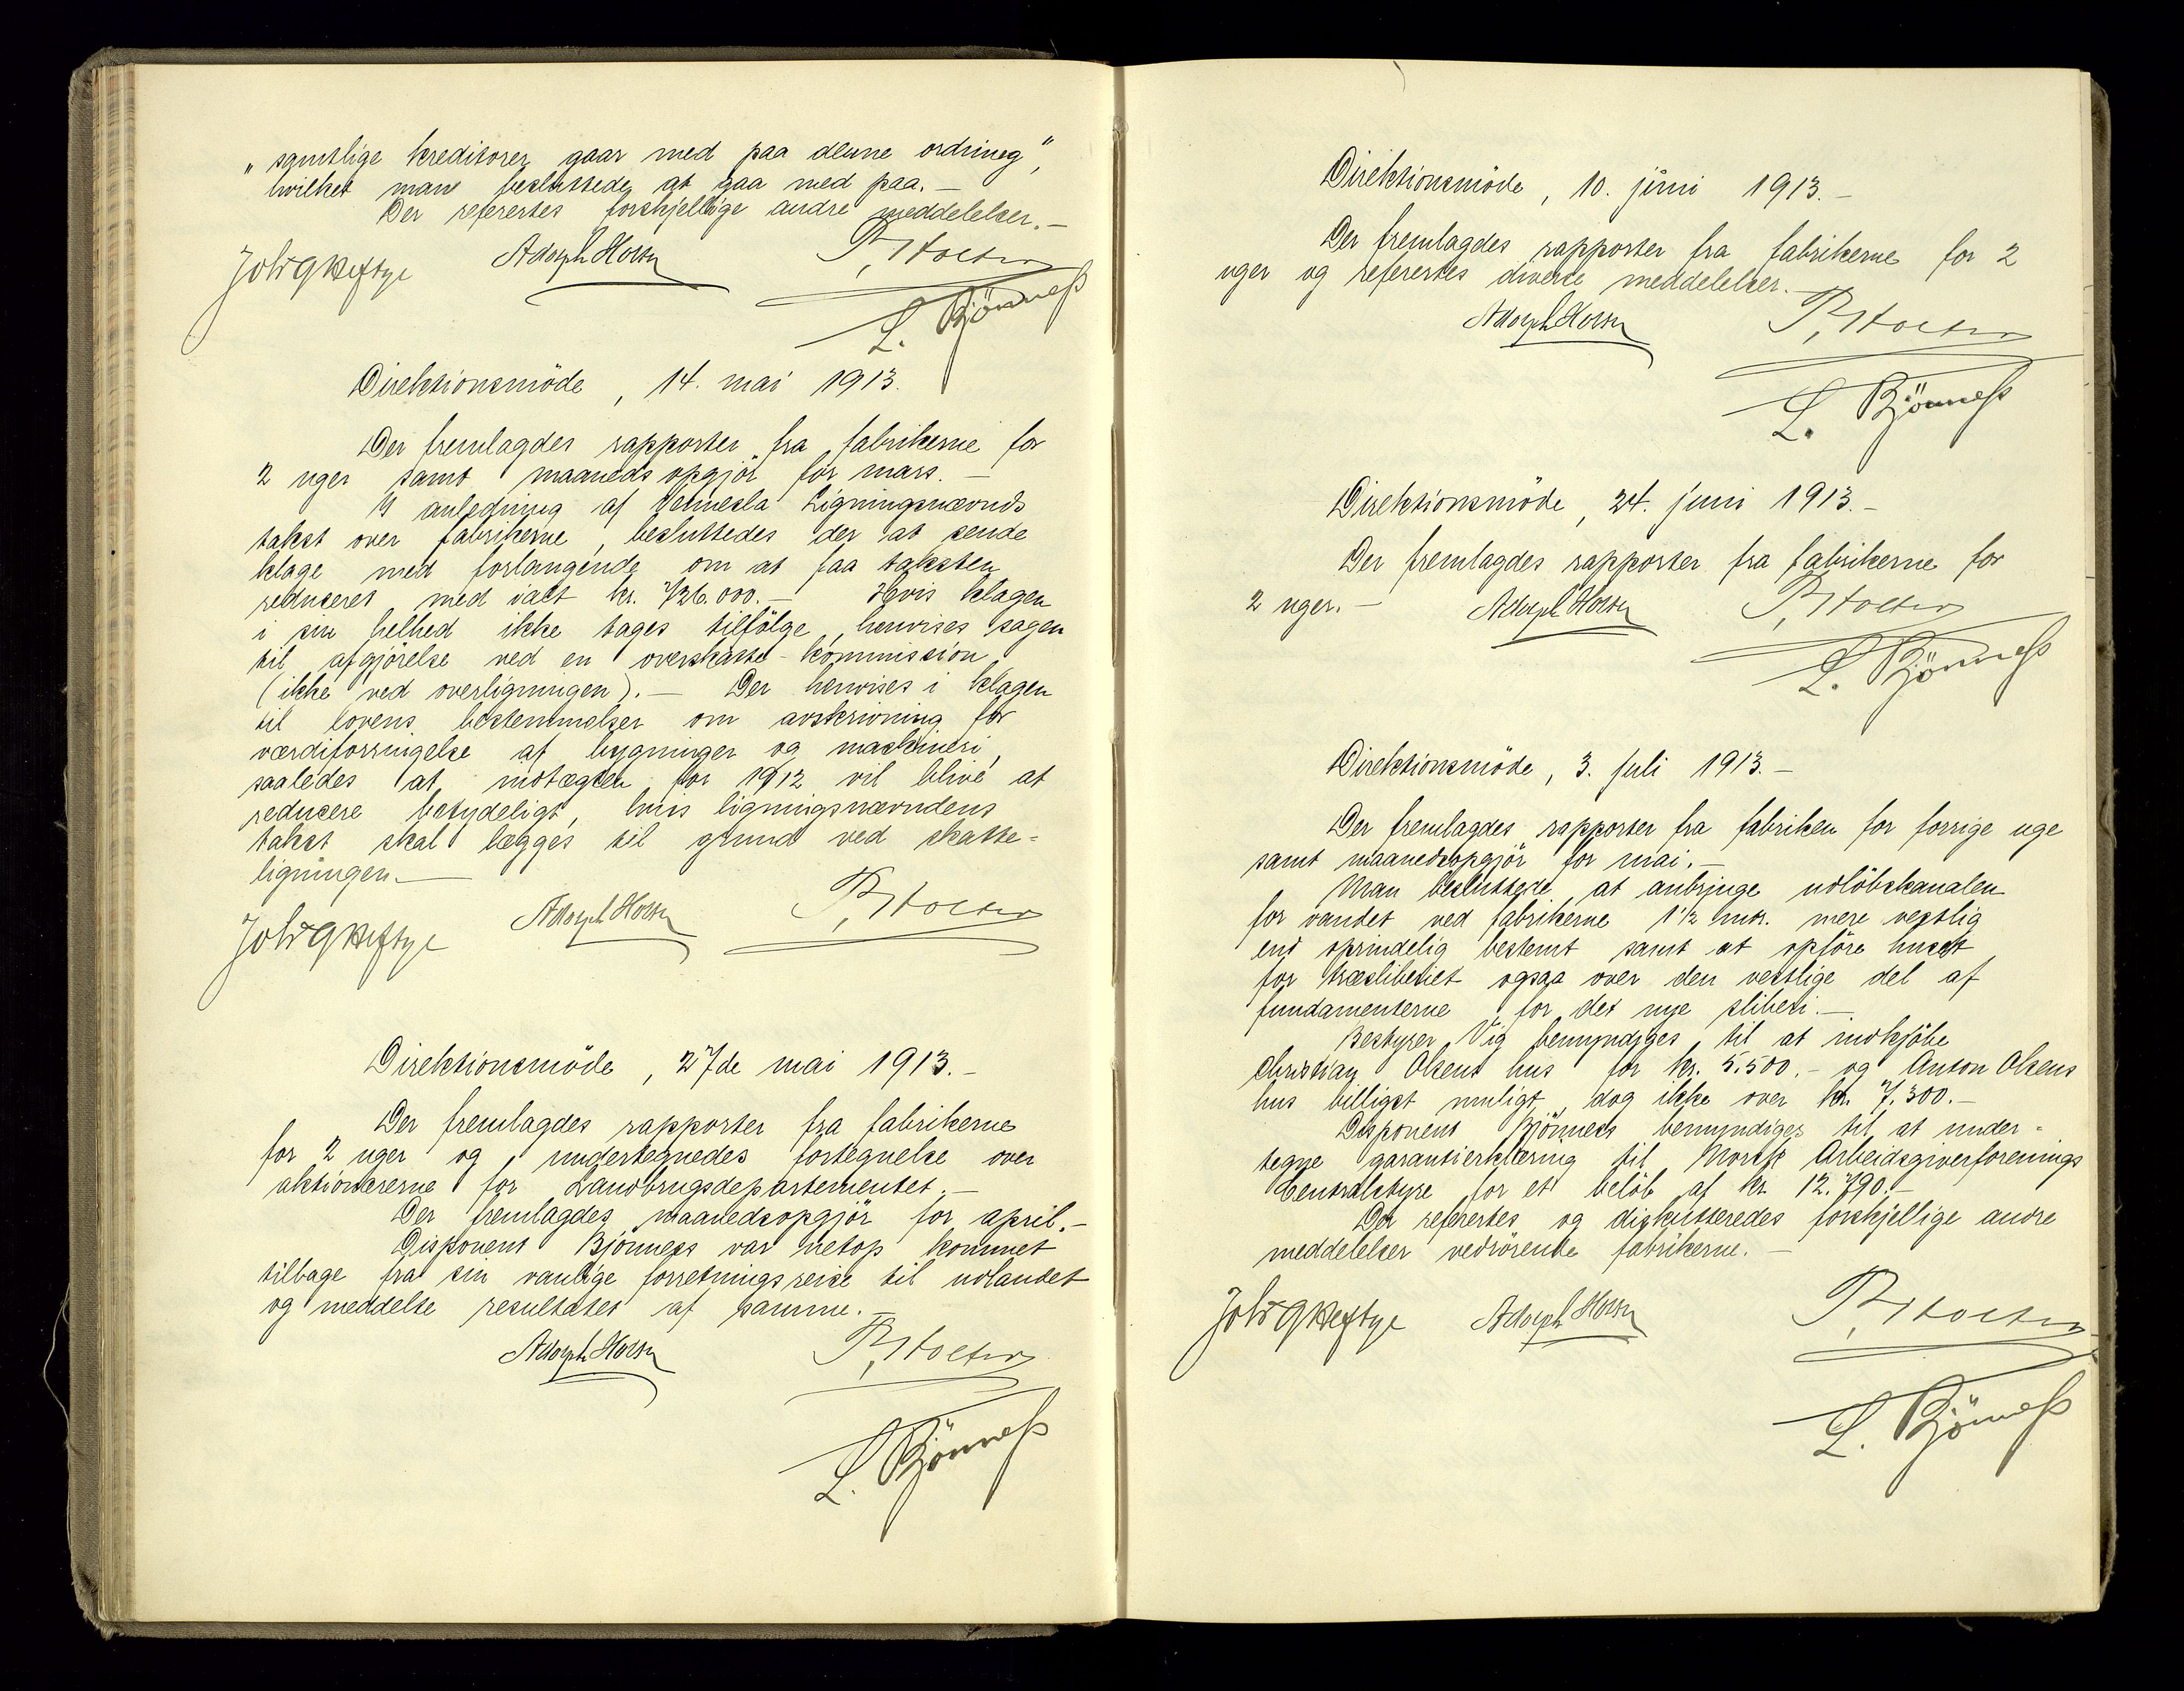 „samtlige kreditorer gaar med paa denne ordning",
hvilket man besluttede at gaa med paa.—
Der refertes forskjellige andre meddelelser.—
Joh GHeftye Adolph Holsen P, Holter
L. Bjönness
Direktionsmöde, 14. mai 1913.
Der fremlagdes rapporter fra fabrikerne for
2 uger samt maanedsopgjör for mars.—
I anledning af Vennesla Ligningsnævnds
takst over fabrikerne, besluttedes der at sende
klage med forlangende om at faa taksten
reduceret med ialt kr. 726.000.— Hvis klagen
i sin helhed ikke tages tilfölge, henvises sagen
til afgjörelse ved en overskatte-kommission
(ikke ved overligningen).— Der henvises i klagen
til lovens bestemmelser om avskrivning for
værdiforringelse af bygninger og maskineri,
saaledes at indtægten for 1912 vil blive at
reducere betydeligt, hvis ligningsnævndens
takst skal lægges til grund ved skatte-
ligningen.—
Joh GHeftye Adolph Holsen P, Holter
Direktionsmöde, 27de mai 1913.—
Der fremlagdes rapporter fra fabrikerne
for 2 uger og undertegnedes fortegnelse over
aktionærerne for Landbrugsdepartementet.—
Der fremlagdes maanedsopgjör for april.—
Disponent Bjönness var netop kommet
tilbage fra sin vanlige forretningsreise til udlandet
og meddelte resultatet af samme.—
Adolph Holsen P, Holter
L. Bjönness
Direktionsmöde, 10. juni 1913.—
Der fremlagdes rapporter fra fabrikerne for 2
uger og refertes diverse meddelelser.—
Adolph Holsen P, Holter
L. Bjönness
Direktionsmöde, 24. juni 1913.—
Der fremlagdes rapporter fra fabrikerne for
2 uger.— Adolph Holsen P, Holter
L. Bjönness
Direktionsmöde, 3. juli 1913.—
Der fremlagdes rapporter fra fabriken for forrige uge
samt maanedsopgjör for mai.—
Man besluttede at anbringe udlöbskanalen
for vandet ved fabrikerne 1½ mtr. mere vestlig
end oprindelig bestemt samt at opföre huset
for træsliberiet ogsaa over den vestlige del af
fundamenterne for det nye sliberi.—
Bestyrer Vig bemyndiges til at indkjöbe
Christian Olsens hus for kr. 5.500.— og Anton Olsens
hus billigst muligt, dog ikke over kr. 7.300.—
Disponent Bjönness bemyndiges til at under-
tegne garantierklæring til Norsk Arbeidsgiverforenings
Centralstyre for et belöb af kr. 12.790.—
Der refertes og diskuteredes forskjellige andre
meddelelser vedrörende fabrikerne.—
Joh GHeftye Adolph Holsen P, Holter
L. Bjönness